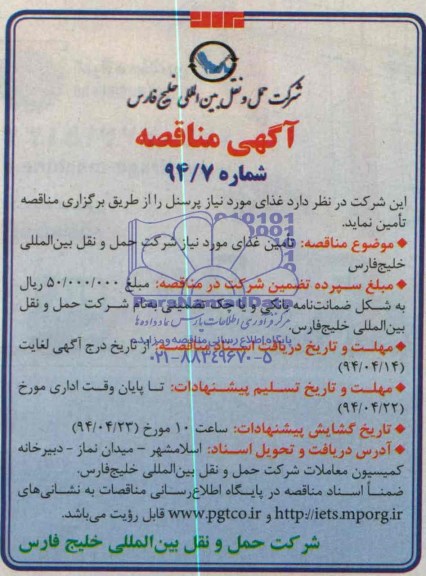 شرکت حمل و نقل بین المللی خلیج فارس
آگهی مناقصه
شماره ۹۴/۷
این شرکت در نظر دارد غذای مورد نیاز پرسنل را از طریق برگزاری مناقصه
تأمین نماید.
◆ موضوع مناقصه: تأمین غذای مورد نیاز شرکت حمل و نقل بین‌المللی
خلیج‌فارس
◆ مبلغ سپرده تضمین شرکت در مناقصه: مبلغ ۵۰/۰۰۰/۰۰۰ ریال
به شکل ضمانت‌نامه بانکی و یا چک تضمینی بنام شرکت حمل و نقل
بین‌المللی خلیج‌فارس.
◆ مهلت و تاریخ دریافت اسناد مناقصه: از تاریخ درج آگهی لغایت
(۹۴/۰۴/۱۴)
◆ مهلت و تاریخ تسلیم پیشنهادات: تا پایان وقت اداری مورخ
(۹۴/۰۴/۲۲)
◆ تاریخ گشایش پیشنهادات: ساعت ۱۰ مورخ (۹۴/۰۴/۲۳)
◆ آدرس دریافت و تحویل اسناد: اسلامشهر - میدان نماز - دبیرخانه
کمیسیون معاملات شرکت حمل و نقل بین‌المللی خلیج‌فارس.
ضمناً اسناد مناقصه در پایگاه اطلاع‌رسانی مناقصات به نشانی‌های
http://iets.mporg.ir و www.pgtco.ir قابل رؤیت می‌باشد.
شرکت حمل و نقل بین‌المللی خلیج فارس
ParsNamadData
مرکز فرآوری اطلاعات پارس نماد داده‌ها
پایگاه اطلاع رسانی مناقصه و مزایده
۰۲۱-۸۸۳۴۹۶۷۰-۵